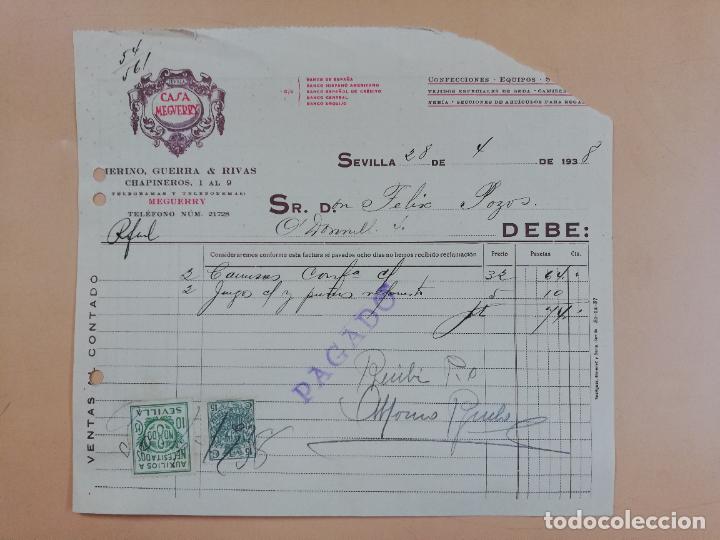 54
561
SEVILLA
CASA
MEGUERRY
MERINO, GUERRA & RIVAS
CHAPINEROS, 1 AL 9
TELEGRAMAS Y TELEFONEMAS:
MEGUERRY
TELÉFONO NÚM. 21728
C/C
BANCO DE ESPAÑA
BANCO HISPANO AMERICANO
BANCO ESPAÑOL DE CRÉDITO
BANCO CENTRAL
BANCO URQUIJO
CONFECCIONES · EQUIPOS · S
TEJIDOS ESPECIALES DE SEDA · CAMISE
NERÍA · SECCIONES DE ARTÍCULOS PARA REGA
SEVILLA 28 DE 4 DE 1938
SR. D. on Felix Pozos
O'Donnell
DEBE:
Consideraremos conforme esta factura si pasados ocho días no hemos recibido reclamación
Precio Pesetas Cts.
2 Camisas Conf. c/ 32 64
2 Juegos c/ y puños 5 10
pt 74
PAGADO
Recibí
VENTAS AL CONTADO
AUXILIOS A
NECESITADOS
NO8DO
10 Cs
SEVILLA
15 Cs
38
todocoleccion.net